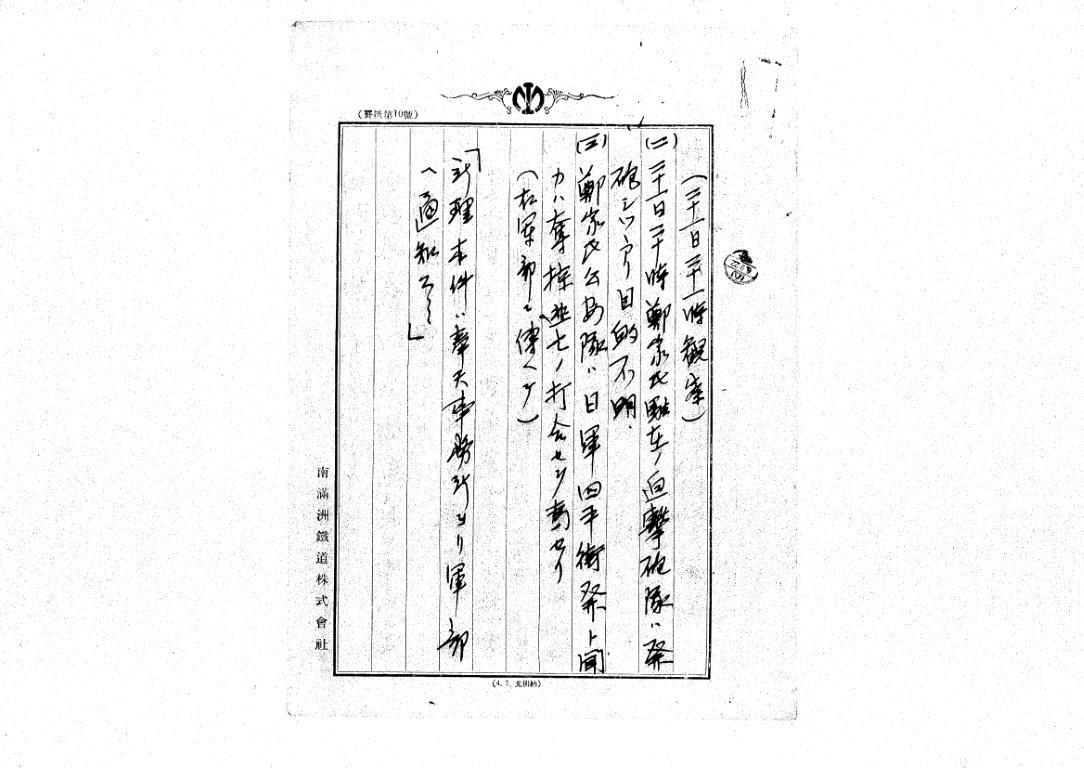 (罫紙第10號)
(二十一日二十一時観察)
(二) 二十一日二十時鄭家屯駐在ノ迫撃砲隊ハ発
砲シツヽアリ目的不明.
(三) 鄭家屯公安隊ハ日軍四平街発ト聞
カハ奪掠逃亡ノ打合セヲ為セリ
(右軍部ニ傳ヘタ)
「処理 本件ハ奉天事務所ヨリ軍部
ヘ通知スミ」
南滿洲鐵道株式會社